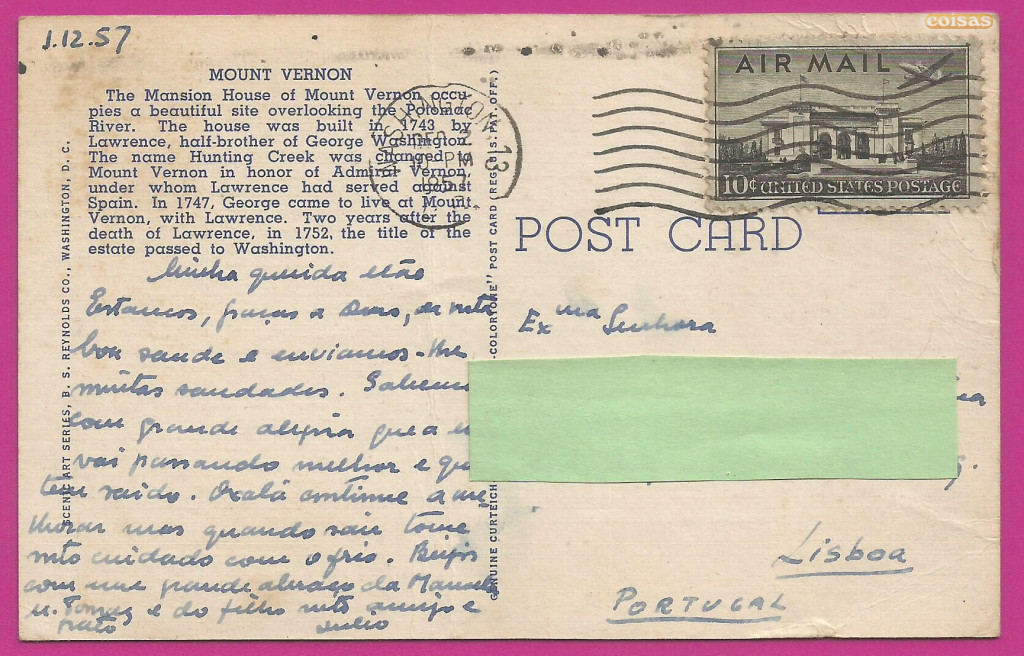 coisas
1.12.57
MOUNT VERNON
The Mansion House of Mount Vernon occu-
pies a beautiful site overlooking the Potomac
River. The house was built in 1743 by
Lawrence, half-brother of George Washington.
The name Hunting Creek was changed to
Mount Vernon in honor of Admiral Vernon,
under whom Lawrence had served against
Spain. In 1747, George came to live at Mount
Vernon, with Lawrence. Two years after the
death of Lawrence, in 1752, the title of the
estate passed to Washington.
Minha querida
Estamos, graças a Deus, de mta
boa saude e enviamos-lhe
muitas saudades. Sabemos
com grande alegria que a
vai passando melhor e que
tem saido. Oxalá continue a me
lhorar mas quando sair tome
mto cuidado com o frio. Beijos
com um grande abraço da Manuela
e do filho mto amigo e
grato
Julio
SCENIC ART SERIES, B. S. REYNOLDS CO., WASHINGTON, D. C.
GENUINE CURTEICH-COLORTONE" POST CARD (REG. U.S. PAT. OFF.)
WASHINGTON 13
DEC 2
PM
195
AIR MAIL
10¢ UNITED STATES POSTAGE
POST CARD
Exma Senhora
Lisboa
PORTUGAL